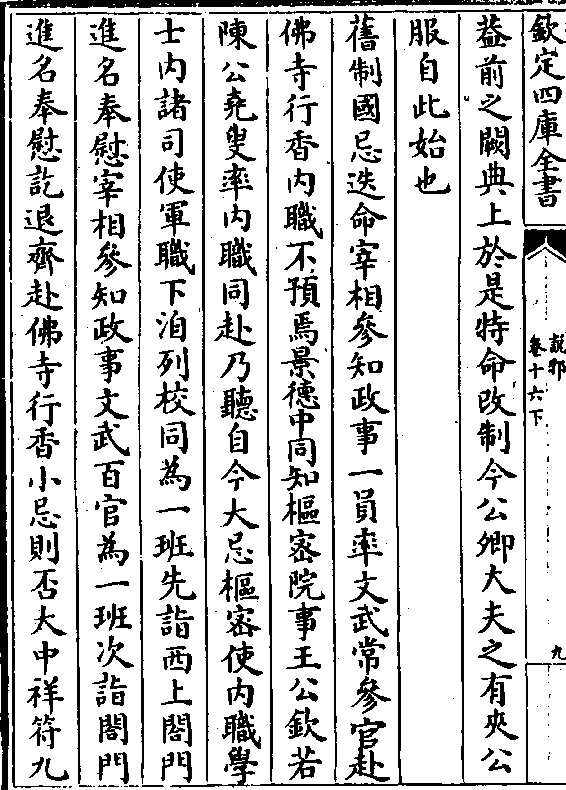 欽定四庫全書
說郛
卷十六下
九
葢前之闕典上於是特命改制今公卿大夫之有夾公
服自此始也
舊制國忌迭命宰相參知政事一員率文武常參官赴
佛寺行香内職不預焉景徳中同知樞密院事王公欽若
陳公堯叟率内職同赴乃聽自今大忌樞密使内職學
士内諸司使軍職下洎列校同為一班先詣西上閤門
進名奉慰宰相參知政事文武百官為一班次詣閤門
進名奉慰訖退齊赴佛寺行香小忌則否大中祥符九